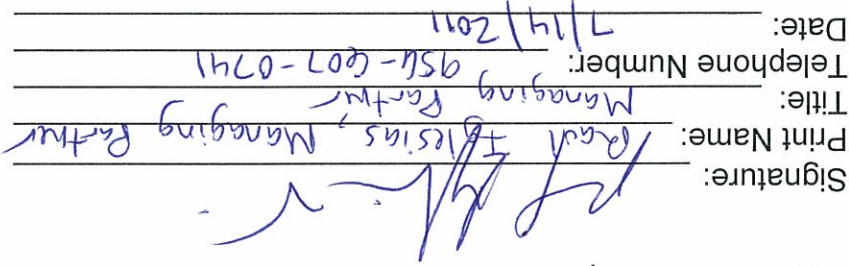 Signature:
Print Name: Raul Iglesias, Managing Partner
Title: Managing Partner
Telephone Number: 954-607-0741
Date: 7/14/2011